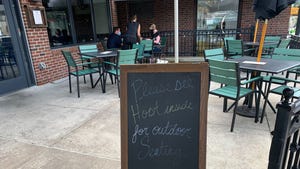 Please see
Host inside
for outdoor
Seating